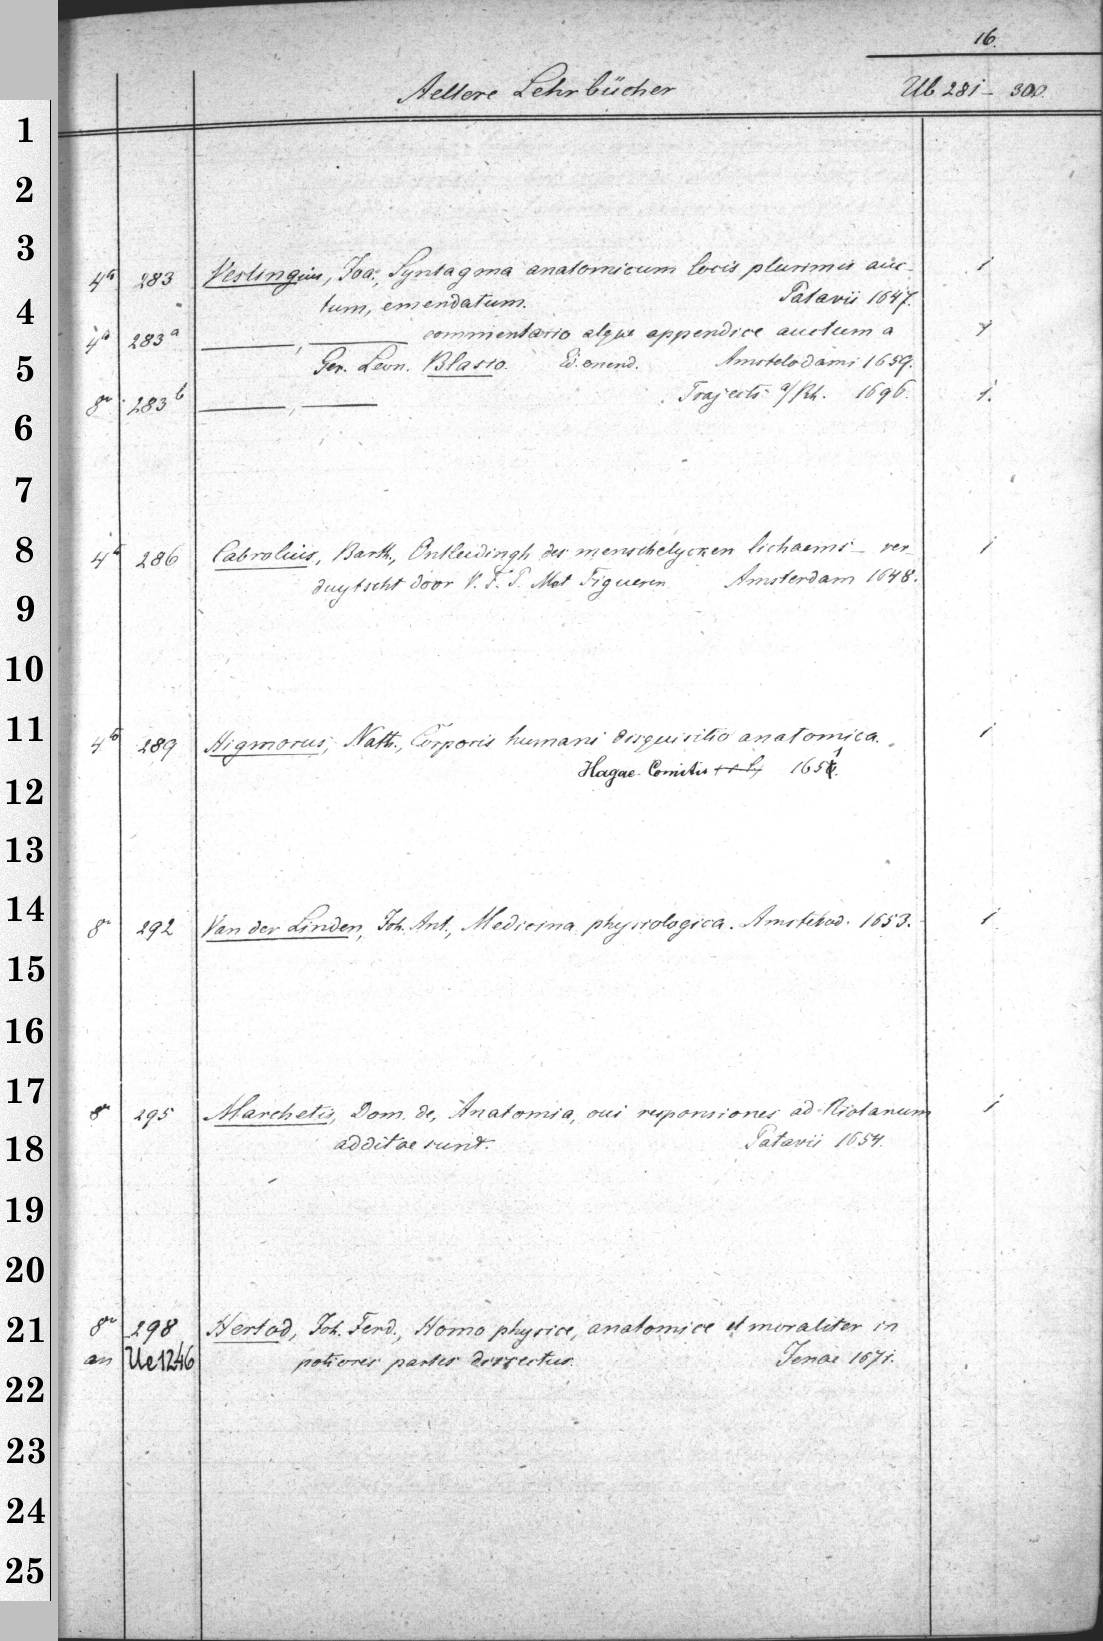 16.
Aeltere Lehrbücher Ub 281 - 300.
1
2
3
4to 283 Veslingius, Joa., Syntagma anatomicum locis plurimis auc- 1
4 tum, emendatum. Patavii 1647.
4to 283a ———, ——— commentario atque appendice auctum a 1
5 Ger. Leon. Blasio. Ed. emend. Amstelodami 1659.
8vo 283b ———, ——— Trajecti a/Rh. 1696. 1.
6
7
8 4to 286 Cabrolius, Barth., Ontleedingh des menschelycken lichaems - ver- 1
duytscht door V. F. P. Met Figueren Amsterdam 1648.
9
10
11 4to 289 Higmorus, Nath., Corporis humani disquisitio anatomica. 1
Hagae Comitis 1651.
12
13
14 8vo 292 Van der Linden, Joh. Ant., Medicina physiologica. Amstelod. 1653. 1
15
16
17 8vo 295 Marchetis, Dom. de, Anatomia, cui responsiones ad Riolanum 1
18 additae sunt. Patavii 1654.
19
20
21 8vo 298 Hertod, Joh. Ferd., Homo physice, anatomice et moraliter in
an Ue1246 potiores partes dissectus. Jenae 1671.
22
23
24
25